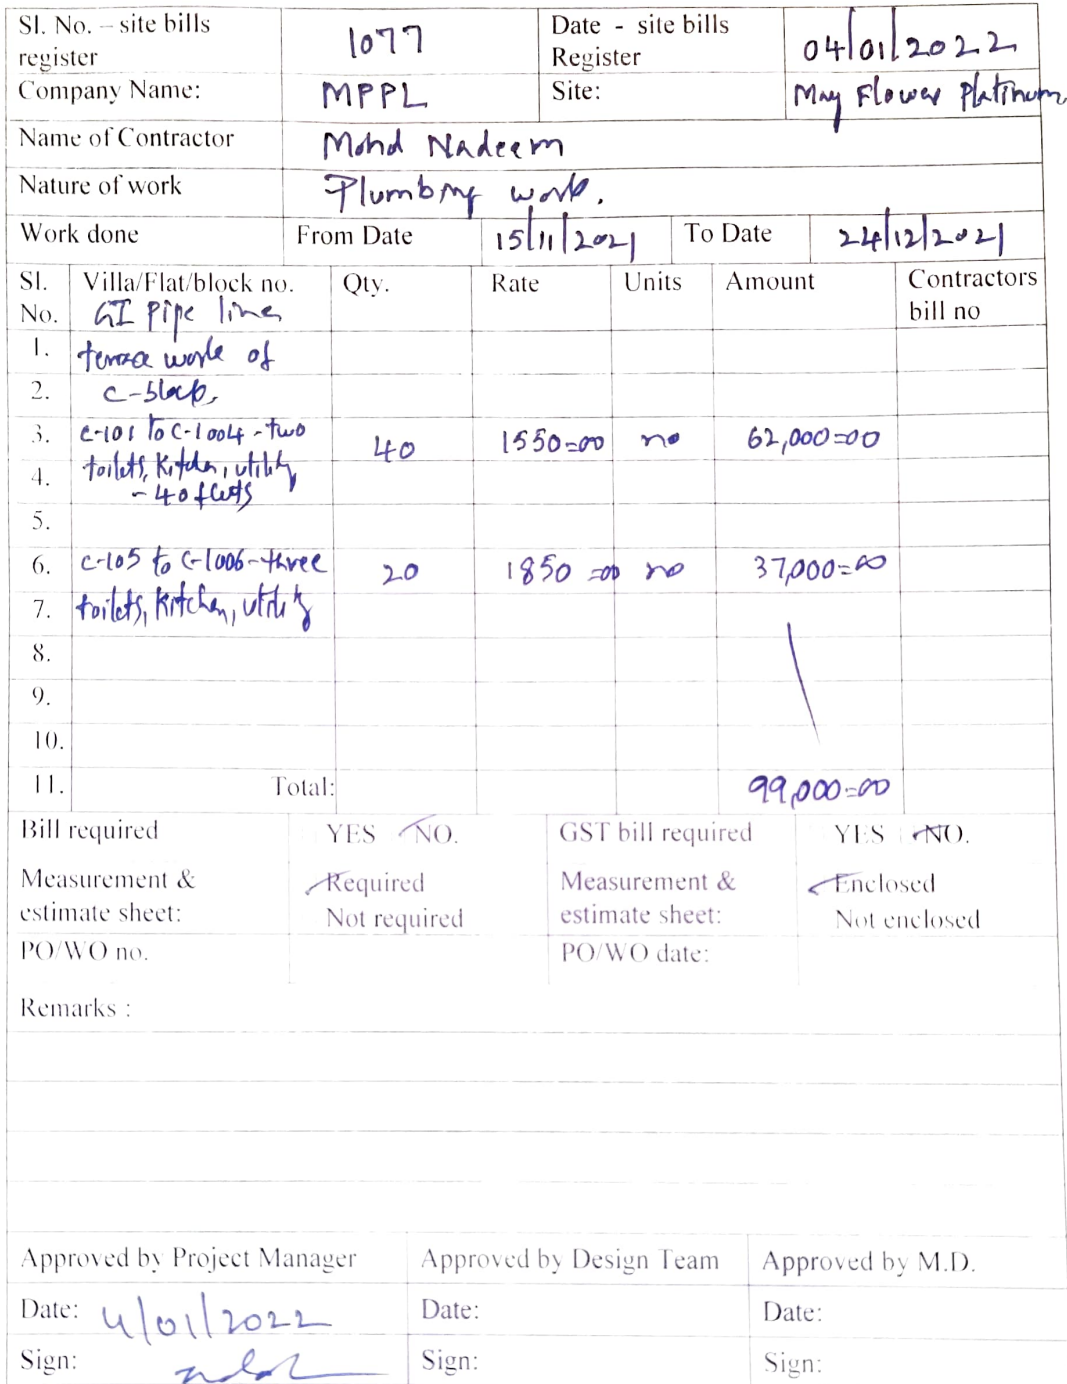 Sl. No. – site bills register 1077 Date - site bills Register 04/01/2022
Company Name: MPPL Site: May Flower Platinum
Name of Contractor Mohd Nadeem
Nature of work Plumbing work.
Work done From Date 15/11/2021 To Date 24/12/2021
Sl. No. Villa/Flat/block no. Qty. Rate Units Amount Contractors bill no
GI Pipe lines
1. terrace work of
2. C-block,
3. C-101 to C-1004 - two 40 1550=00 no 62,000=00
4. toilets, Kitchen, utility
- 40 flats
5.
6. C-105 to C-1006 - three 20 1850=00 no 37,000=00
7. toilets, Kitchen, utility
8.
9.
10.
11. Total: 99,000=00
Bill required YES NO. GST bill required YES NO.
Measurement & estimate sheet: Required Not required Measurement & estimate sheet: Enclosed Not enclosed
PO/WO no. PO/WO date:
Remarks :
Approved by Project Manager Approved by Design Team Approved by M.D.
Date: 4/01/2022 Date: Date:
Sign: Sign: Sign: